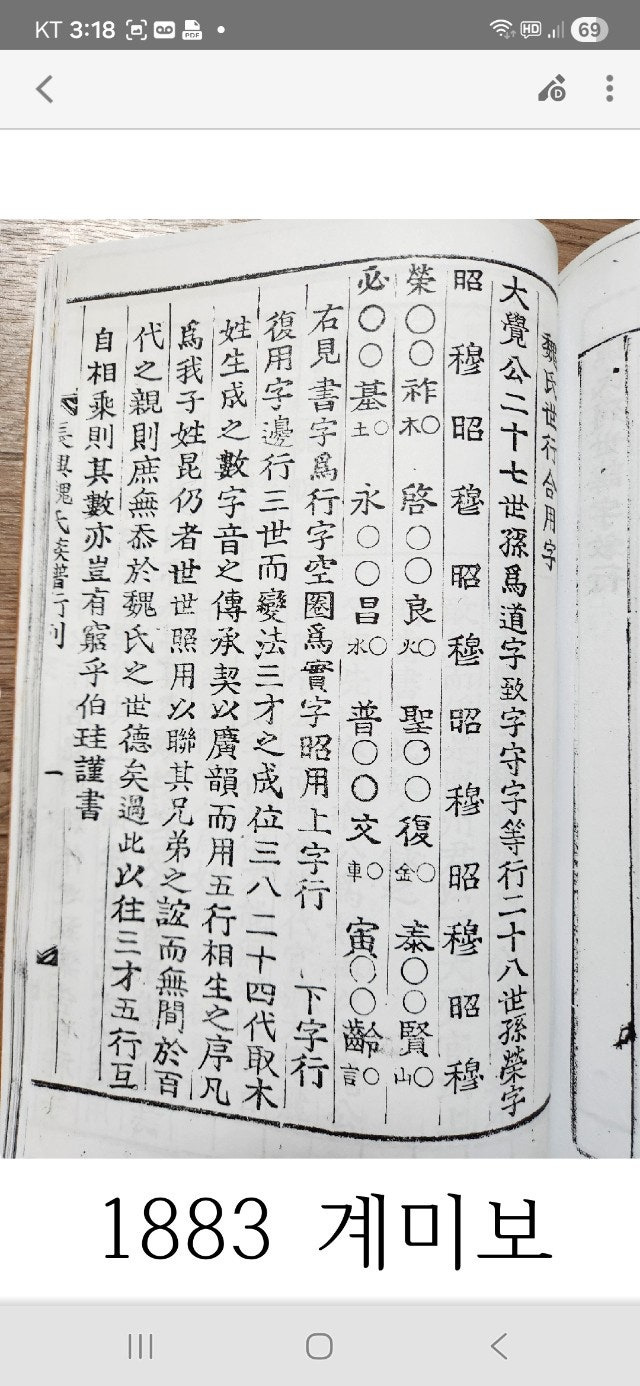 KT 3:18
PDF
HD
69
魏氏世行合用字
大覺公二十七世孫爲道字致字守字等行二十八世孫榮字
昭 穆 昭 穆 昭 穆 昭 穆 昭 穆 昭 穆
榮〇〇祚木〇 啓〇〇良火〇 聖〇〇復金〇 泰〇〇賢山〇
必〇〇基土〇 永〇〇昌水〇 普〇〇交車〇 寅〇〇齡言〇
右見書字爲行字空圈爲實字昭用上字行 下字行
復用字邊行三世而變法三才之成位三八二十四代取木
姓生成之數字音之傳承契以廣韻而用五行相生之序凡
爲我子姓昆仍者世世照用以聯其兄弟之誼而無間於百
代之親則庶無忝於魏氏之世德矣過此以往三才五行互
自相乘則其數亦豈有窮乎伯珪謹書
長興魏氏族譜行列 一
1883 계미보